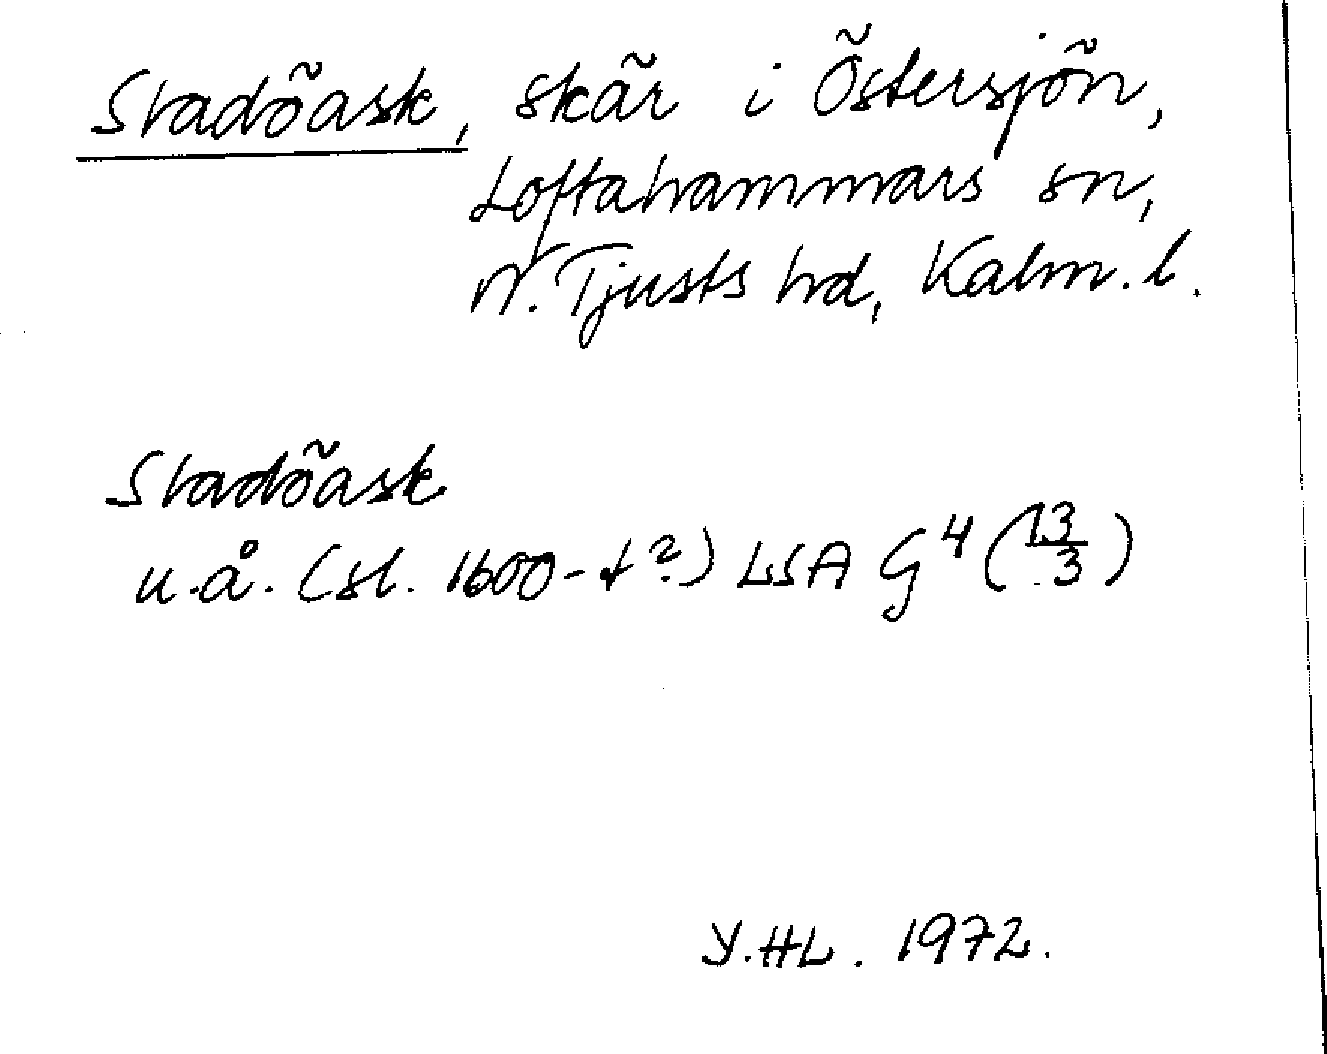 Sladöask, skär i Östersjön,
Loftahammars sn,
N. Tjusts hd, Kalm. l.
Sladöask
u.å. (sl. 1600-t?) LSA G⁴ (13/3)
Y.HL. 1972.